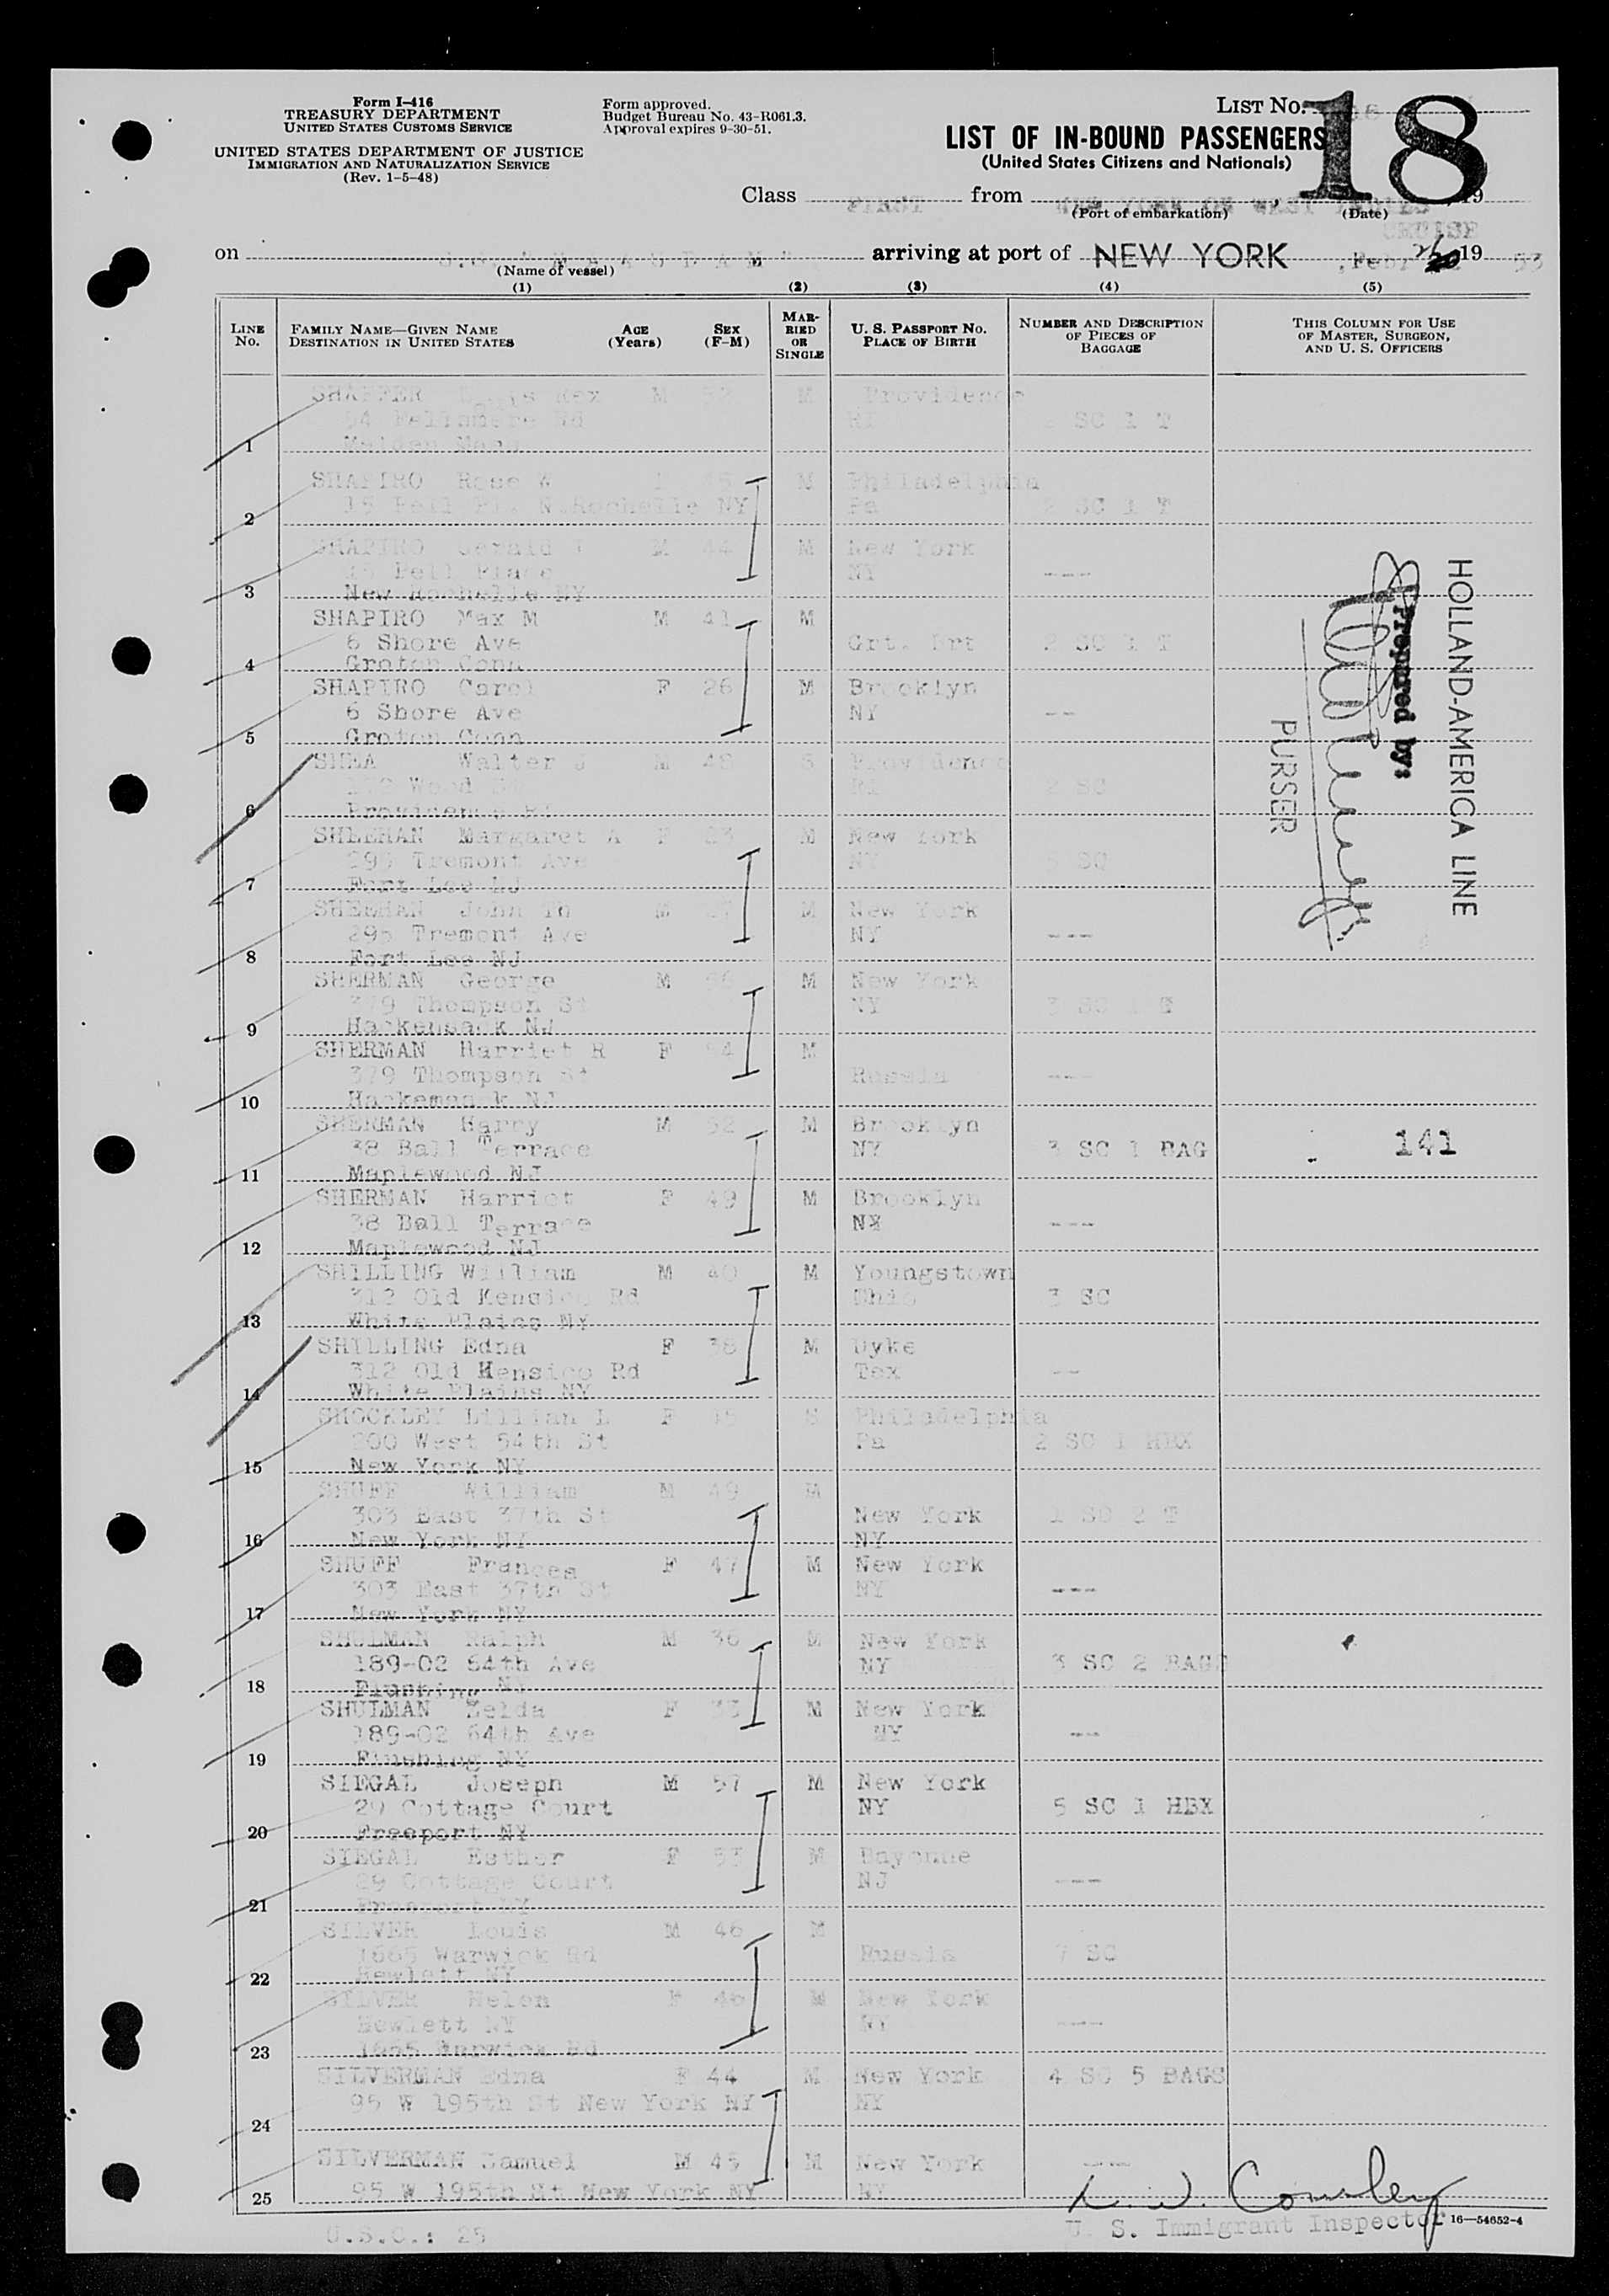 Form I-416
TREASURY DEPARTMENT
UNITED STATES CUSTOMS SERVICE
UNITED STATES DEPARTMENT OF JUSTICE
IMMIGRATION AND NATURALIZATION SERVICE
(Rev. 1-5-48)
Form approved.
Budget Bureau No. 43-R061.3.
Approval expires 9-30-51.
LIST NO.
18
LIST OF IN-BOUND PASSENGERS
(United States Citizens and Nationals)
Class FIRST from NEW YORK ON WEST INDIES, 19
(Port of embarkation) (Date)
CRUISE
on arriving at port of NEW YORK, 19 53
(Name of vessel)
(1) (2) (3) (4) (5)
LINE No. FAMILY NAME—GIVEN NAME DESTINATION IN UNITED STATES AGE (Years) SEX (F-M) MARRIED OR SINGLE U. S. PASSPORT NO. PLACE OF BIRTH NUMBER AND DESCRIPTION OF PIECES OF BAGGAGE THIS COLUMN FOR USE OF MASTER, SURGEON, AND U. S. OFFICERS
SHAFFER Rex M M Providence
RI SC 1 T
1 Malden Mass
SHAPIRO Rose W M Philadelphia
15 Pell N.Rochelle NY Pa 2 SC 1 T
2
SHAPIRO Gerald M 44 M New York
15 Pell Place NY ---
3 New Rochelle NY
SHAPIRO Max M M 41 M
6 Shore Ave Grt. Brt 2 SC 1 T
4 Groton Conn
SHAPIRO Carol F 26 M Brooklyn
6 Shore Ave NY --
5 Groton Conn
SHEA Walter J M 48 S Providence
Wood RI 2 SC
6 Providence RI
SHEEHAN Margaret A F M New York
295 Tremont Ave NY SC
7 Fort Lee NJ
SHEEHAN John Th M M New York
295 Tremont Ave NY ---
8 Fort Lee NJ
SHERMAN George M 56 M New York
379 Thompson St NY 3 SC 1 T
9 Hackensack NJ
SHERMAN Harriet R F 54 M
379 Thompson St Russia ---
10 Hackemsack NJ
SHERMAN Harry M 52 M Brooklyn
38 Ball Terrace NY 3 SC 1 BAG 141
11 Maplewood NJ
SHERMAN Harriet F 49 M Brooklyn
38 Ball Terrace NY ---
12 Maplewood NJ
SHILLING William M 40 M Youngstown
312 Old Kensico Rd Ohio 3 SC
13 White Plains NY
SHILLING Edna F 38 M Dyke
312 Old Kensico Rd Tex --
14 White Plains NY
SHOCKLEY Lillian L F S Philadelphia
200 West 54th St Pa 2 SC 1 HBX
15 New York NY
SHUFF William M 49 M
303 East 37th St New York 1 SC 2 T
16 New York NY NY
SHUFF Frances F 47 M New York
303 East 37th St NY ---
17 New York NY
SHULMAN Ralph M 36 M New York
189-02 64th Ave NY 3 SC 2 BAGS
18 Flushing NY
SHULMAN Zelda F 33 M New York
189-02 64th Ave NY --
19 Flushing NY
SIEGAL Joseph M 57 M New York
29 Cottage Court NY 5 SC 1 HBX
20 Freeport NY
SIEGAL Esther F 53 M Bayonne
29 Cottage Court NJ ---
21 Freeport NY
SILVER Louis M 46 M
1665 Warwick Rd Russia 7 SC
22 Hewlett NY
SILVER Helen F 46 M New York
Hewlett NY NY ---
23 1665 Warwick Rd
SILVERMAN Edna F 44 M New York 4 SC 5 BAGS
95 W 195th St New York NY NY
24
SILVERMAN Samuel M 45 M New York ---
25 95 W 195th St New York NY NY
HOLLAND-AMERICA LINE
Prepared by:
PURSER
U.S.C.: 25
U. S. Immigrant Inspector
16—54652-4